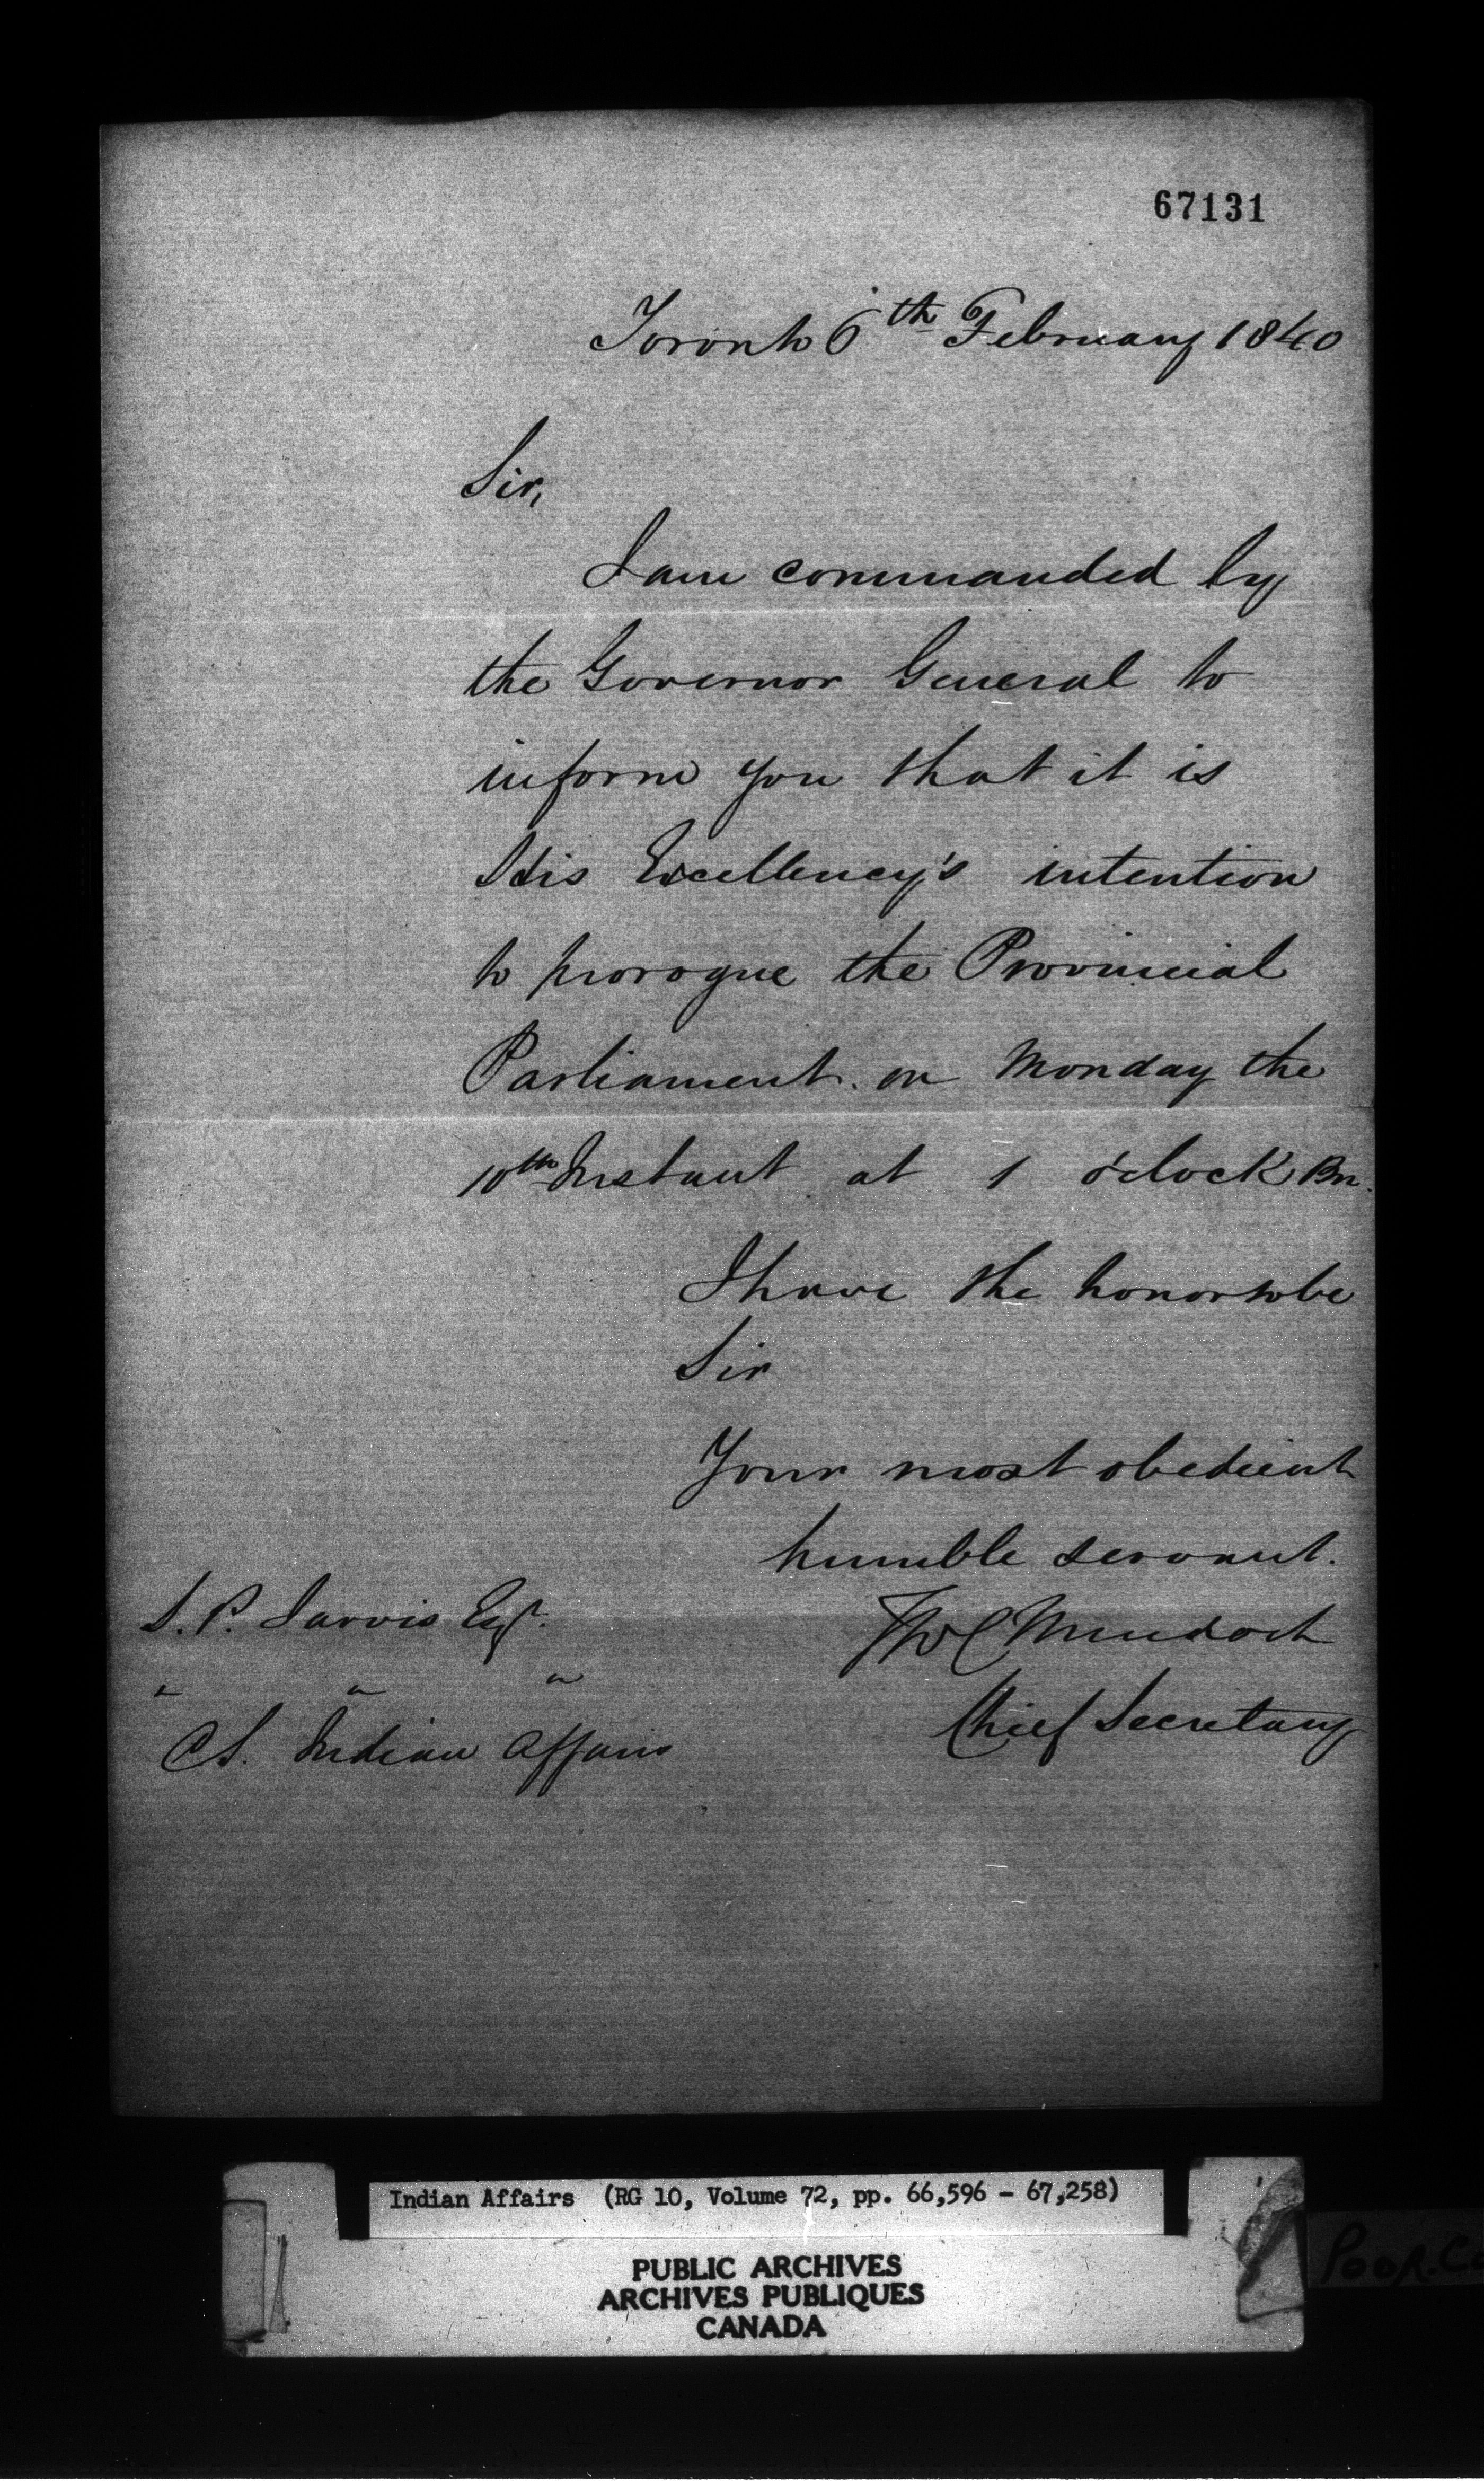 67131
Toronto 6th February 1840
Sir,
I am commanded by
the Governor General to
inform you that it is
His Excellency's intention
to prorogue the Provincial
Parliament. on Monday the
10th Instant at 1 o'clock Pm.
I have the honor to be
Sir
Your most obedient
humble servant.
S. P. Jarvis Esqr.
TWC Murdoch
" " "
Chief Secretary
CS. Indian Affairs
Indian Affairs (RG 10, Volume 72, pp. 66,596 - 67,258)
PUBLIC ARCHIVES
ARCHIVES PUBLIQUES
CANADA